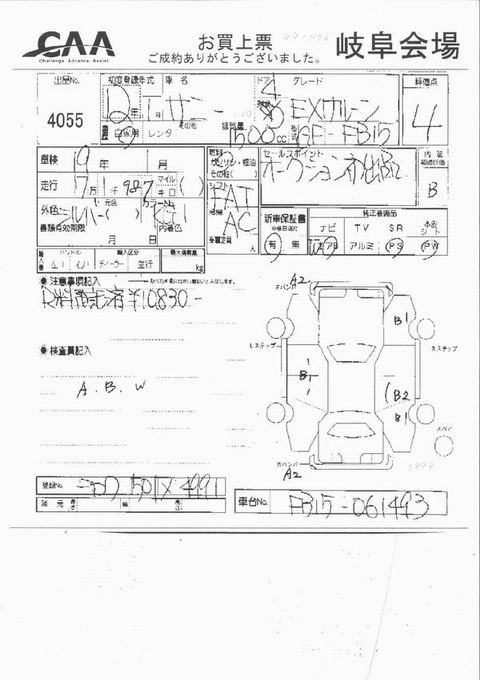 CAA
Challenge Advance Assist
お買上票
ご成約ありがとうございました。
岐阜会場
出品No.
4055
初度登録年式
車名
サニー
ドア
4
グレード
EXサルーン
評価点
4
自家用
レンタ
その他
排気量
1500cc
型式
GF-FB15
車検
9年
月
燃料
ガソリン・軽油
その他( )
セールスポイント
オークション初出品
内装
B
走行
7万1987
マイル
キロ
( )
シフト
FAT
AC
外色
シルバー( )
元色
カラーNo.
書類有効期限
月
日
内装色
乗車定員
新車保証書
有
無
純正装備品
ナビ
TV
SR
本革シート
エアB
アルミ
PS
PW
ハンドル
輸入区分
ディーラー
並行
最大積載量
kg
注意事項記入
R料預託済¥10830-
検査員記入
A.B.W
Fバンパ
A2
B1
Lステップ
Rステップ
B1
B2
B1
スペア
Rバンパ
A2
登録No.
501
4991
諸元
長さ
幅
高さ
車台No.
FB15-061493